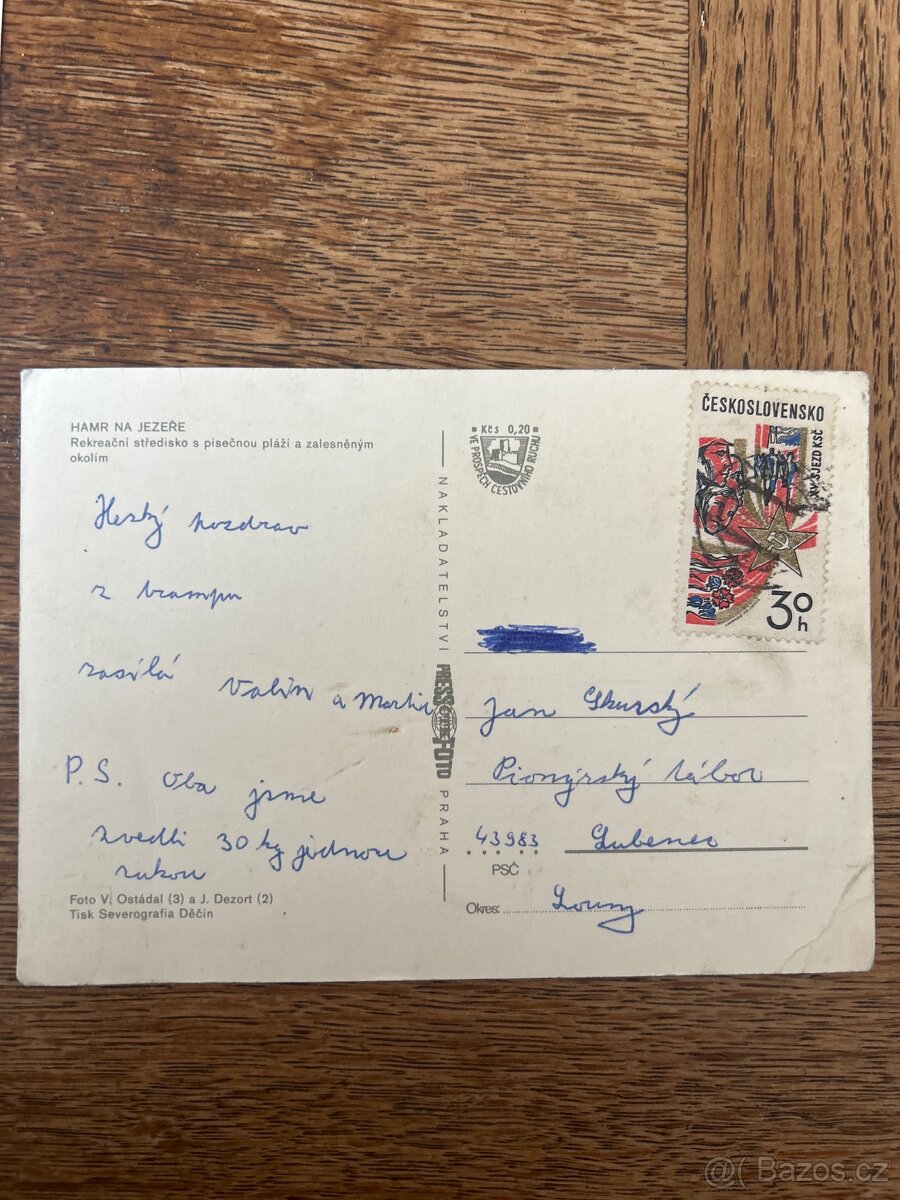 HAMR NA JEZEŘE
Rekreační středisko s písečnou pláží a zalesněným
okolím
Hezký pozdrav
z trampu
zasílá Valin a Martin
P.S. Oba jsme
zvedli 30 kg jednou
rukou
Foto V. Ostádal (3) a J. Dezort (2)
Tisk Severografia Děčín
NAKLADATELSTVÍ PRESSFOTO PRAHA
Kčs 0,20
VE PROSPĚCH CESTOVNÍHO RUCHU
ČESKOSLOVENSKO
XV. SJEZD KSČ
30h
Jan Skurský
Pionýrský tábor
43983 Lubenec
PSČ
Okres: Louny
@( Bazos.cz